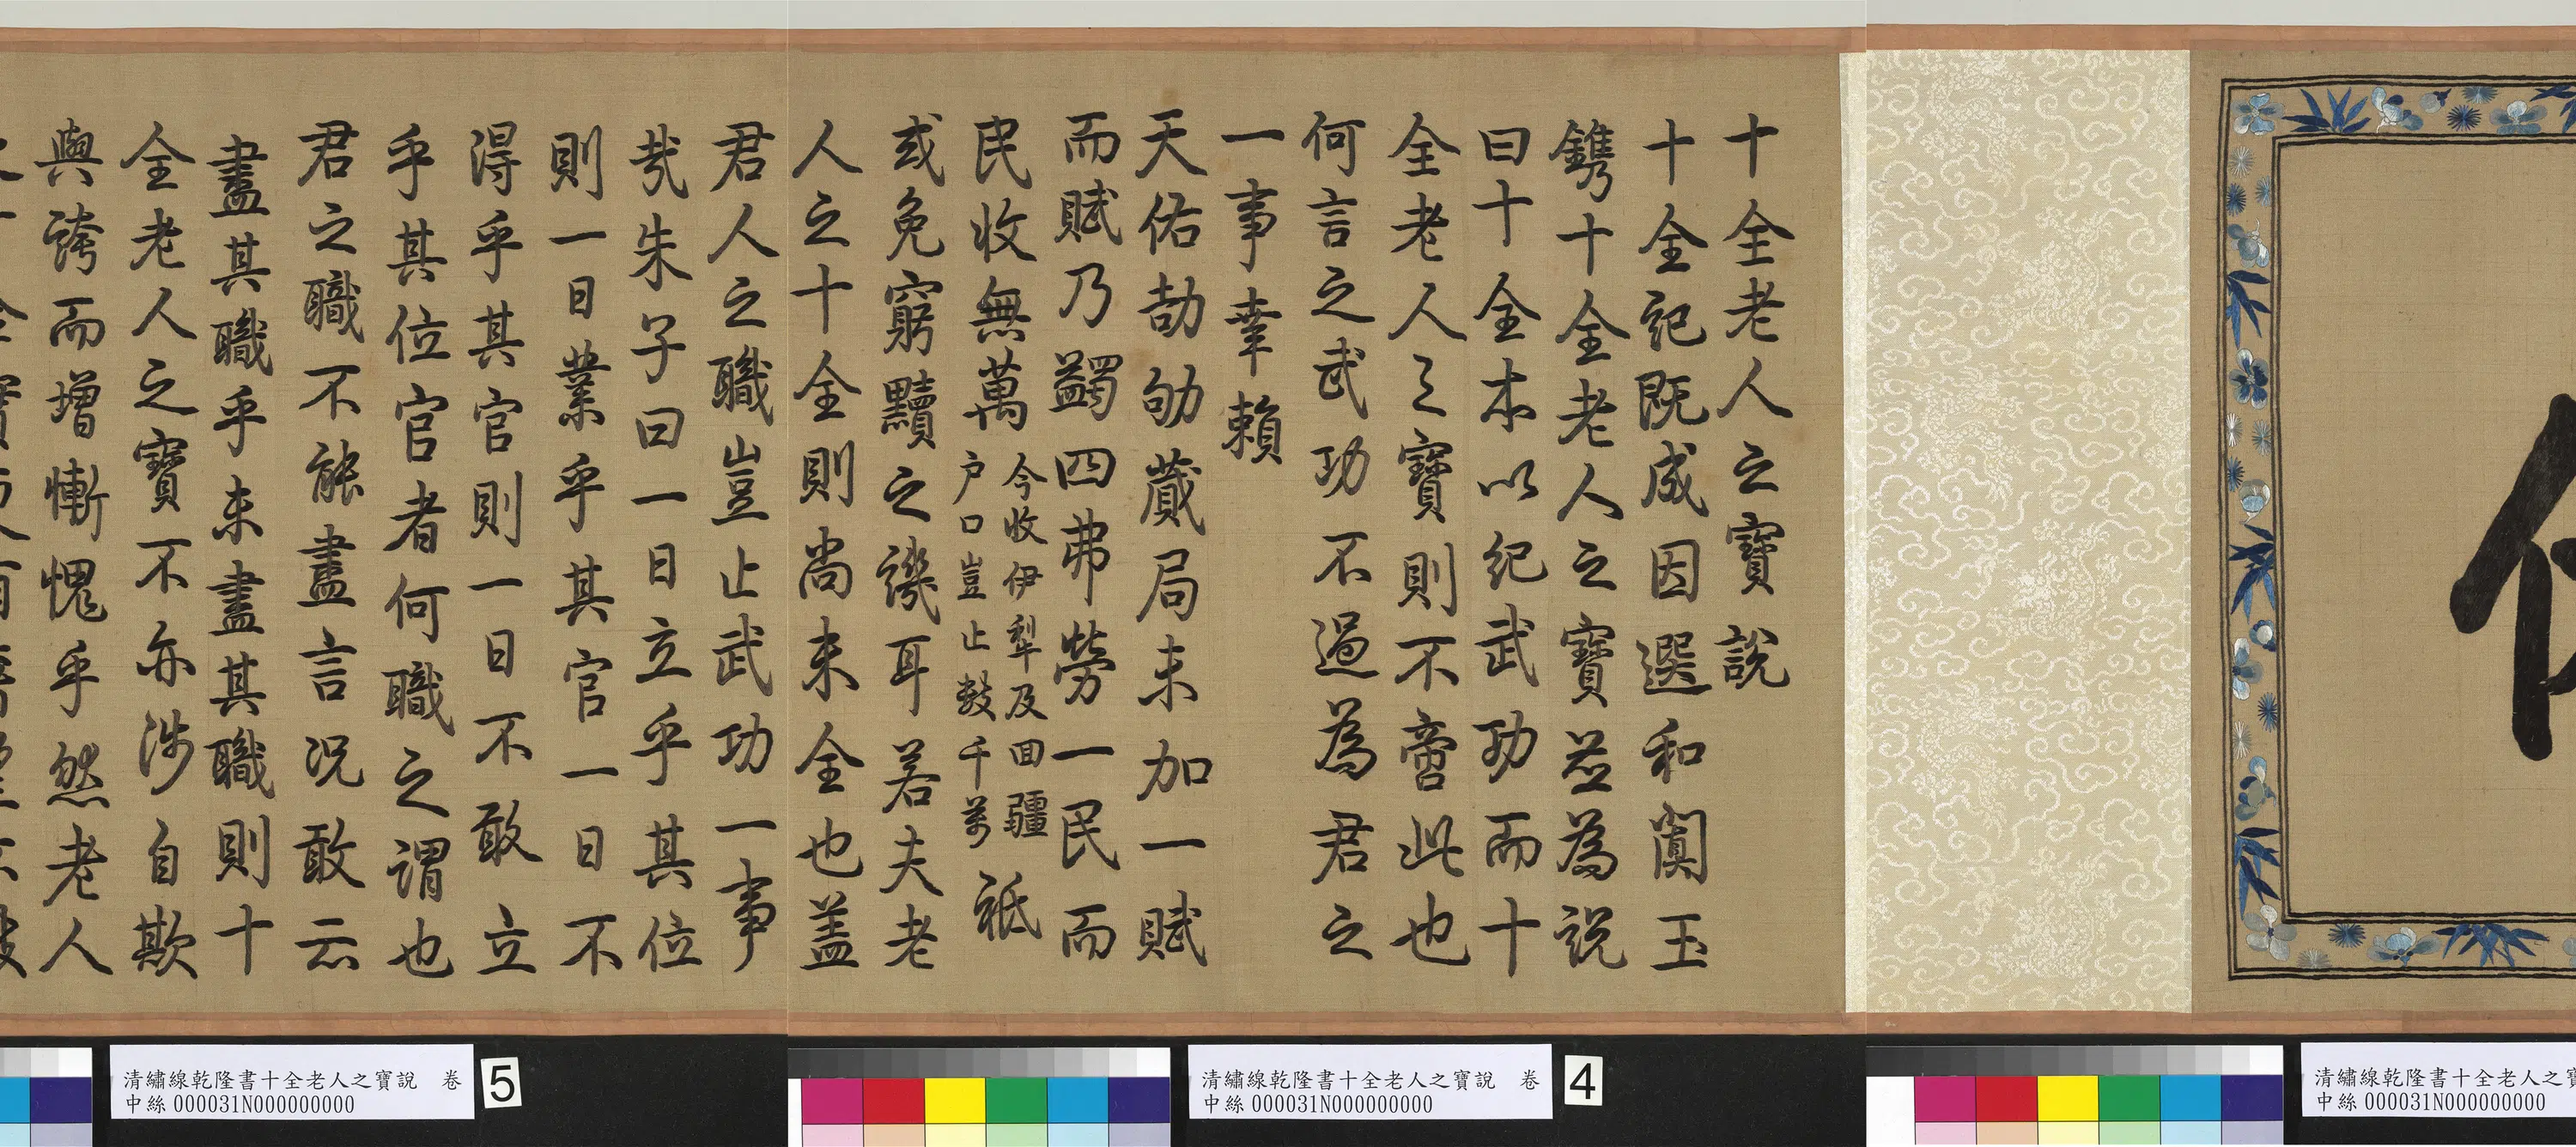 十全老人之寶說
十全記既成因選和闐玉
鐫十全老人之寶並為說
曰十全本以紀武功而十
全老人之寶則不啻此也
何言之武功不過為君之
一事幸賴
天佑劼劬蕆局未加一賦
而賦乃蠲四弗勞一民而
民收無萬今收伊犁及回疆
戶口豈止數千萬祗
或免窮黷之譏耳若夫老
人之十全則尚未全也蓋
君人之職豈止武功一事
哉朱子曰一日立乎其位
則一日業乎其官一日不
得乎其官則一日不敢立
乎其位官者何職之謂也
君之職不能盡言況敢云
盡其職乎未盡其職則十
全老人之寶不亦涉自欺
與誇而增慚愧乎然老人
5
清繡線乾隆書十全老人之寶說 卷
中絲000031N000000000
4
清繡線乾隆書十全老人之寶說 卷
中絲000031N000000000
清繡線乾隆書十全老人之寶
中絲000031N000000000